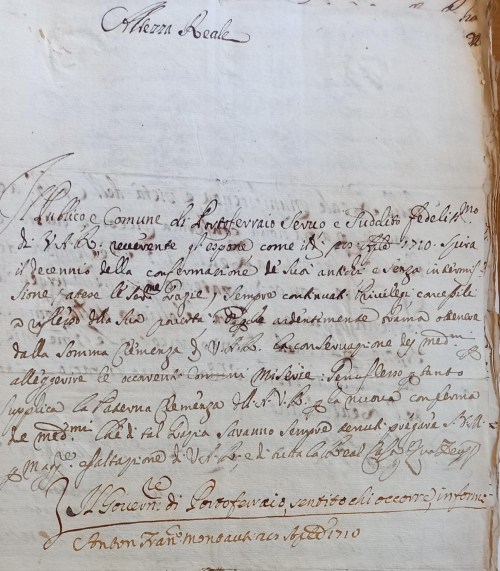 Altezza Reale
Il Publico e Comune di Portoferraio Servo e Suddito Fedeliss.mo
di V.A.R. reverente espone come il di p.ro 1710 spira
il decennio della confermazione de suoi antichi e senza intermis
sione, atese le Sovr.ne Grazie, sempre continuati Privilegi concessili
a riflesso della sua povertà ardentemente brama ottenere
dalla somma Clemenza di V.A.R. la conservazione dei med.mi
alleggerire le occorrenti comuni Miserie. Genuflesso p tanto
supplica la Paterna Clemenza dell'A.V.R. p la nuova conferma
de med.mi Che di tal Grazia saranno sempre tenuti pregare S.D.M.
p Mag.re esaltazione di V.A.R. e di tutta la Real Casa
Il Govern.re di Portoferraio, sentito chi occorre, informi
Anton Fran.co Montauti 1710